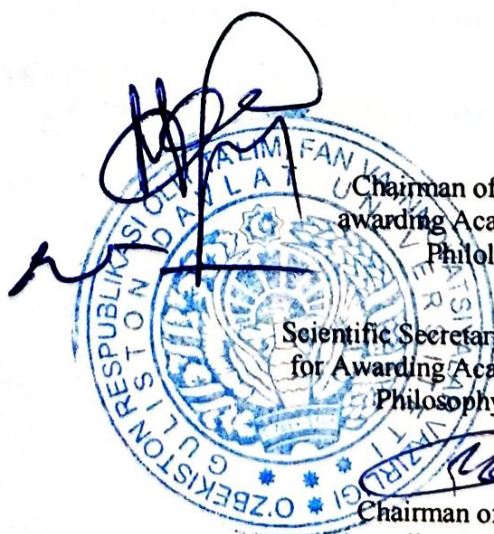 Chairman of
awarding Aca
Philol
Scientific Secretar
for Awarding Aca
Philosophy
Chairman of
O'ZBEKISTON RESPUBLIKASI OLIY TA'LIM, FAN VA INNOVATSIYALAR VAZIRLIGI
GULISTON DAVLAT UNIVERSITETI